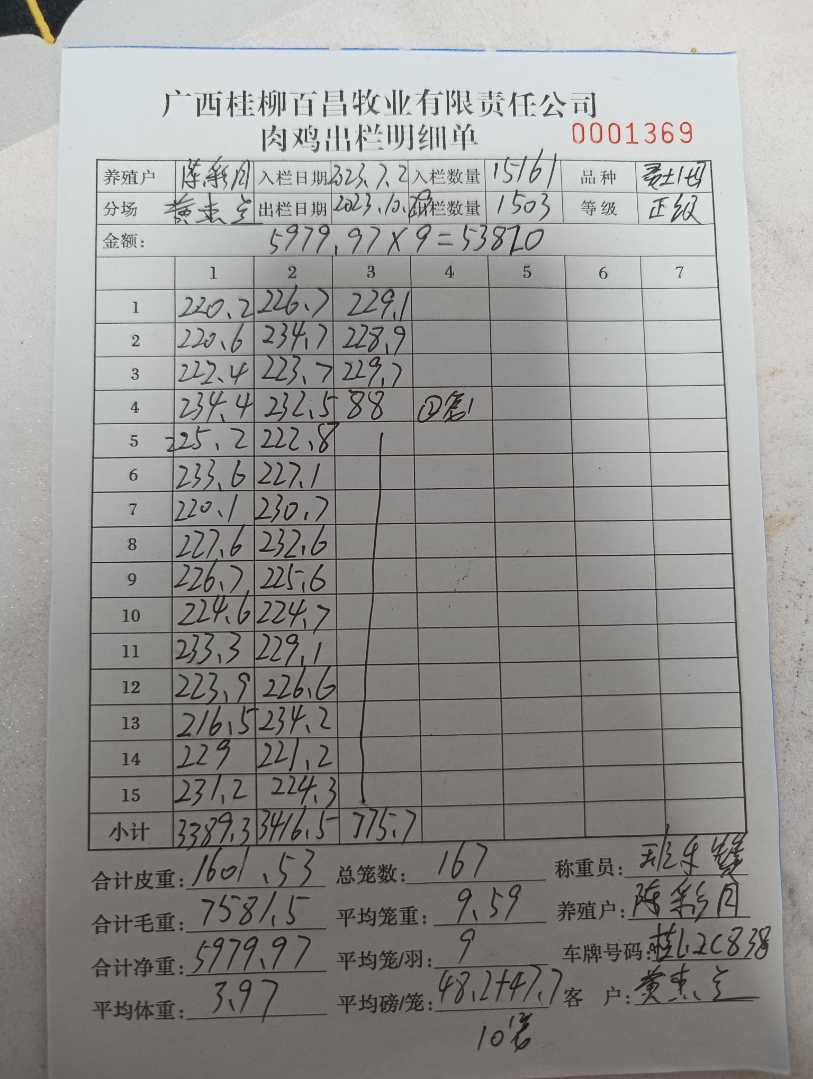 广西桂柳百昌牧业有限责任公司
肉鸡出栏明细单 0001369
养殖户 陈彩月 入栏日期 2023.7.2 入栏数量 15161 品种
分场 出栏日期 2023.10.29 出栏数量 1503 等级 正级
金额: 5979.97×9=53820
1 2 3 4 5 6 7
1 220.2 226.7 229.1
2 220.6 234.7 228.9
3 222.4 223.7 229.7
4 234.4 232.5 88
5 225.2 222.8
6 233.6 227.1
7 220.1 230.7
8 227.6 232.6
9 226.7 225.6
10 224.6 224.7
11 233.3 229.1
12 223.9 226.6
13 216.5 234.2
14 229 221.2
15 231.2 224.3
小计 3389.3 3416.5 775.7
合计皮重: 1601.53 总笼数: 167 称重员:
合计毛重: 7581.5 平均笼重: 9.59 养殖户: 陈彩月
合计净重: 5979.97 平均笼/羽: 9 车牌号码: 桂L2C838
平均体重: 3.97 平均磅/笼: 48.2+47.7 客 户: